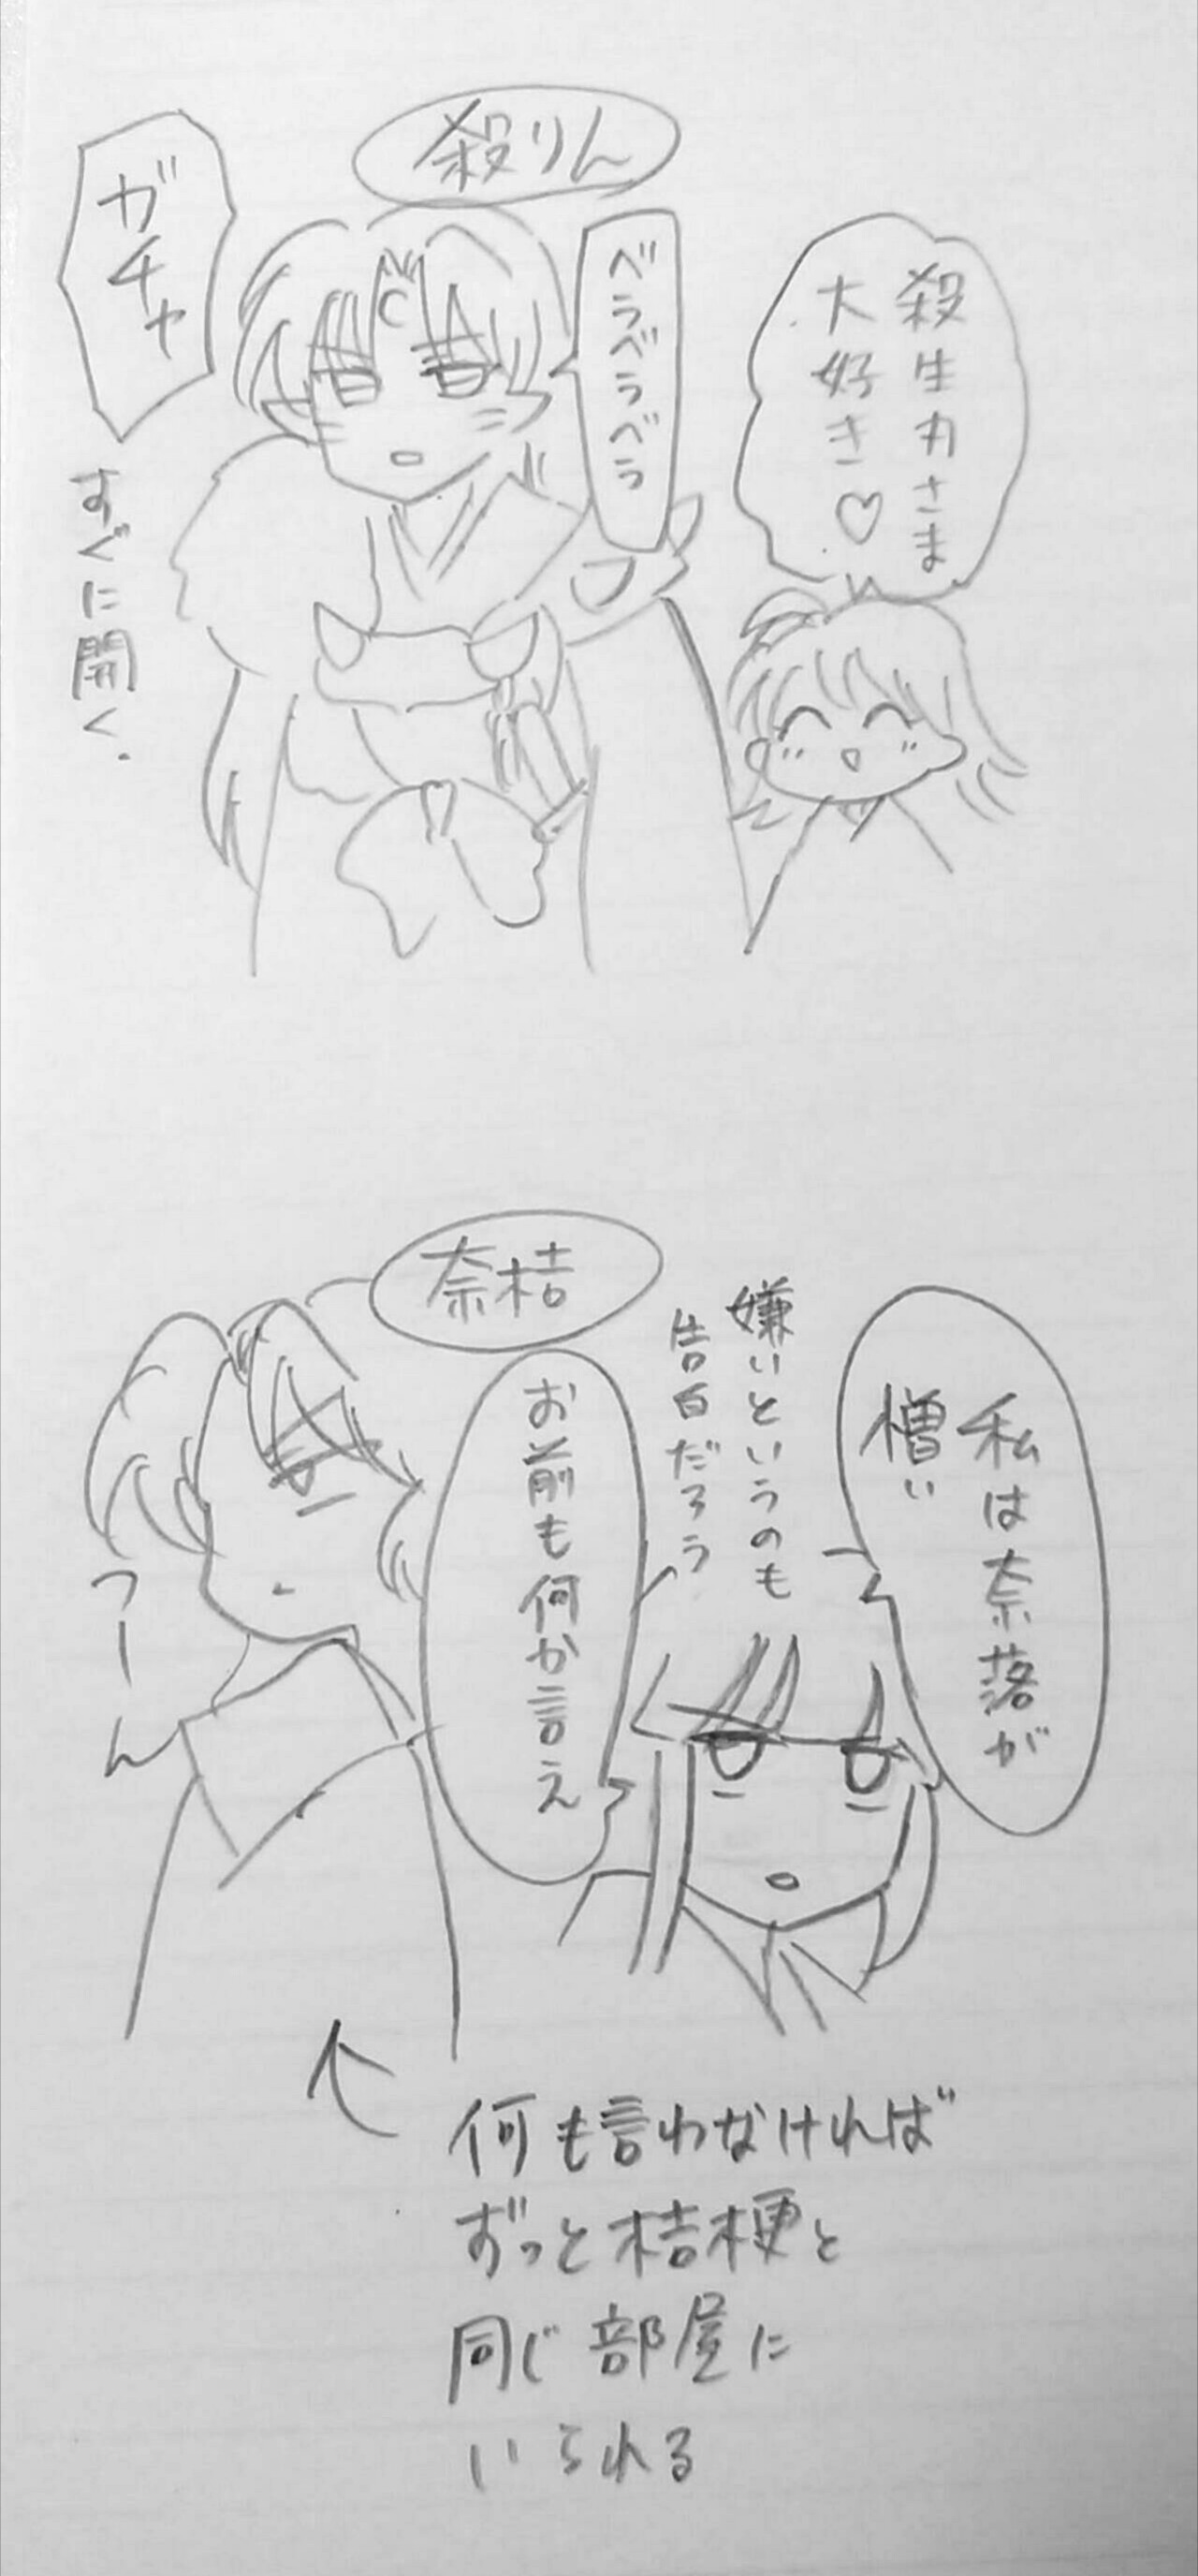 殺りん
殺生丸さま
大好き♡
ベラベラベラ
ガチャ
すぐに開く.
奈桔
私は奈落が
憎い
嫌いというのも
告白だろう
お前も何か言え
つーん
何も言わなければ
ずっと桔梗と
同じ部屋に
いられる